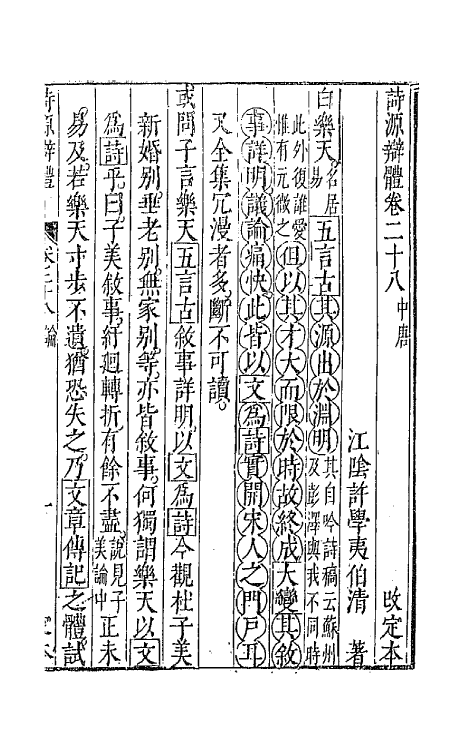 詩源辯體卷二十八 中唐 改定本
江陰許學夷伯清 著
白樂天名居易五言古其源出於淵明其自吟詩稿云蘇州及彭澤與我不同時
此外復誰愛惟有元微之但以其才大而限於時故終成大變其敘
事詳明議論痛快此皆以文為詩實開宋人之門戶耳
又全集冗漫者多斷不可讀
或問子言樂天五言古敘事詳明以文為詩今觀杜子美
新婚別垂老別無家別等亦皆敘事何獨謂樂天以文
為詩乎曰子美敘事紆迴轉折有餘不盡說見子美論中正未
易及若樂天寸步不遺猶恐失之乃文章傳記之體試
詩源辯體 卷二十八 論 一 定本